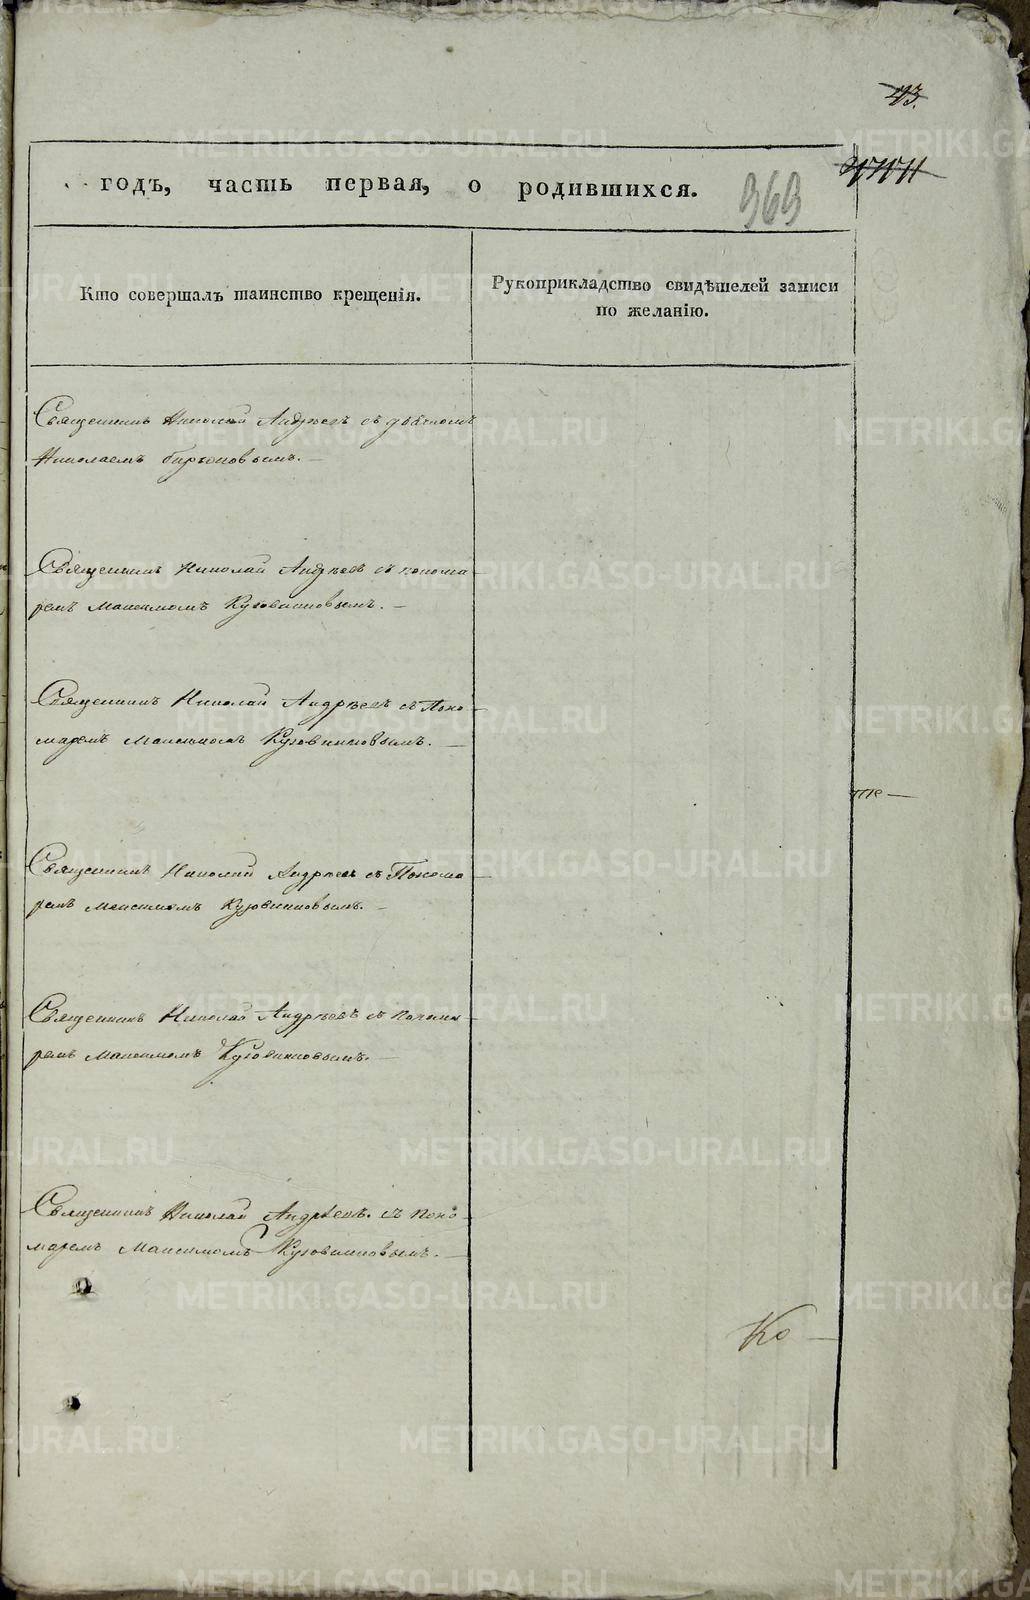 43.
годъ, часть первая, о родившихся.
369
Кто совершалъ таинство крещенія.
Рукоприкладство свидѣтелей записи
по желанію.
Священникъ Николай Андреевъ съ дьячкомъ
Николаемъ
Священникъ Николай Андреевъ съ понома
ремъ Максимомъ Кузовниковымъ. —
Священникъ Николай Андреевъ съ Поно
маремъ Максимомъ Кузовниковымъ. —
Священникъ Николай Андреевъ съ Понома
ремъ Максимомъ Кузовниковымъ. —
Священникъ Николай Андреевъ съ Понома
ремъ Максимомъ Кузовниковымъ. —
Священникъ Николай Андреевъ. съ Поно
маремъ Максимомъ Кузовниковымъ. —
Ко —
METRIKI.GASO-URAL.RU